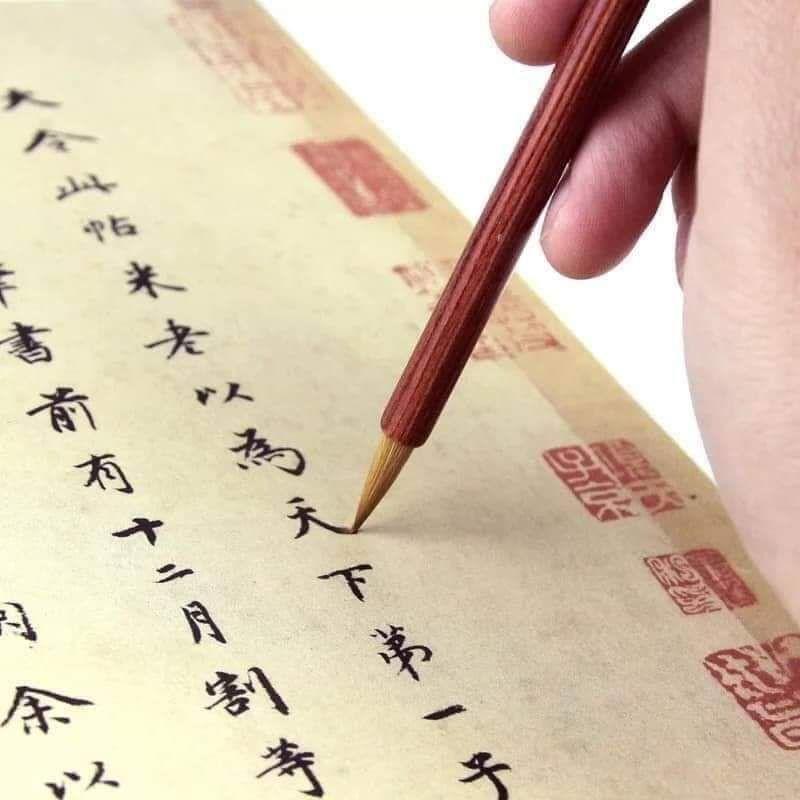 大令此帖米老以為天下第一子
書前有十二月割等
余以